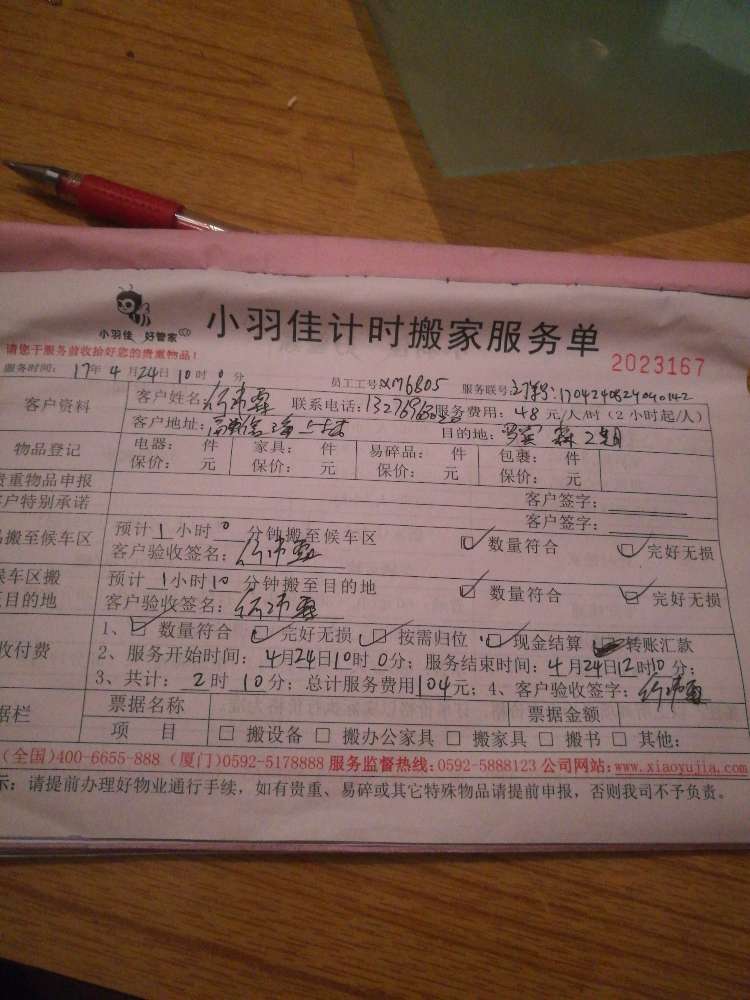 小羽佳 好管家
小羽佳计时搬家服务单
2023167
请您于服务前收拾好您的贵重物品!
服务时间: 17年 4月24日10时0分 员工工号XM6805 服务联号 订单号:170424082404
客户资料 客户姓名: 联系电话: 服务费用: 48元/人/时(2小时起/人)
客户地址: 目的地:
物品登记 电器: 件 家具: 件 易碎品: 件 包裹: 件
保价: 元 保价: 元 保价: 元 保价: 元
贵重物品申报 客户签字:
客户特别承诺 客户签字:
搬至候车区 预计1小时0分钟搬至候车区
客户验收签名: 数量符合 完好无损
候车区搬 预计1小时10分钟搬至目的地
至目的地 客户验收签名: 数量符合 完好无损
收付费 1、数量符合 完好无损 按需归位 现金结算 转账汇款
2、服务开始时间: 4月24日10时0分; 服务结束时间: 4月24日12时10分;
3、共计: 2时10分; 总计服务费用104元; 4、客户验收签字:
据栏 票据名称 票据金额
项 目 搬设备 搬办公家具 搬家具 搬书 其他:
(全国)400-6655-888 (厦门)0592-5178888 服务监督热线:0592-5888123 公司网站:www.xiaoyujia.com
示: 请提前办理好物业通行手续, 如有贵重、易碎或其它特殊物品请提前申报, 否则我司不予负责。